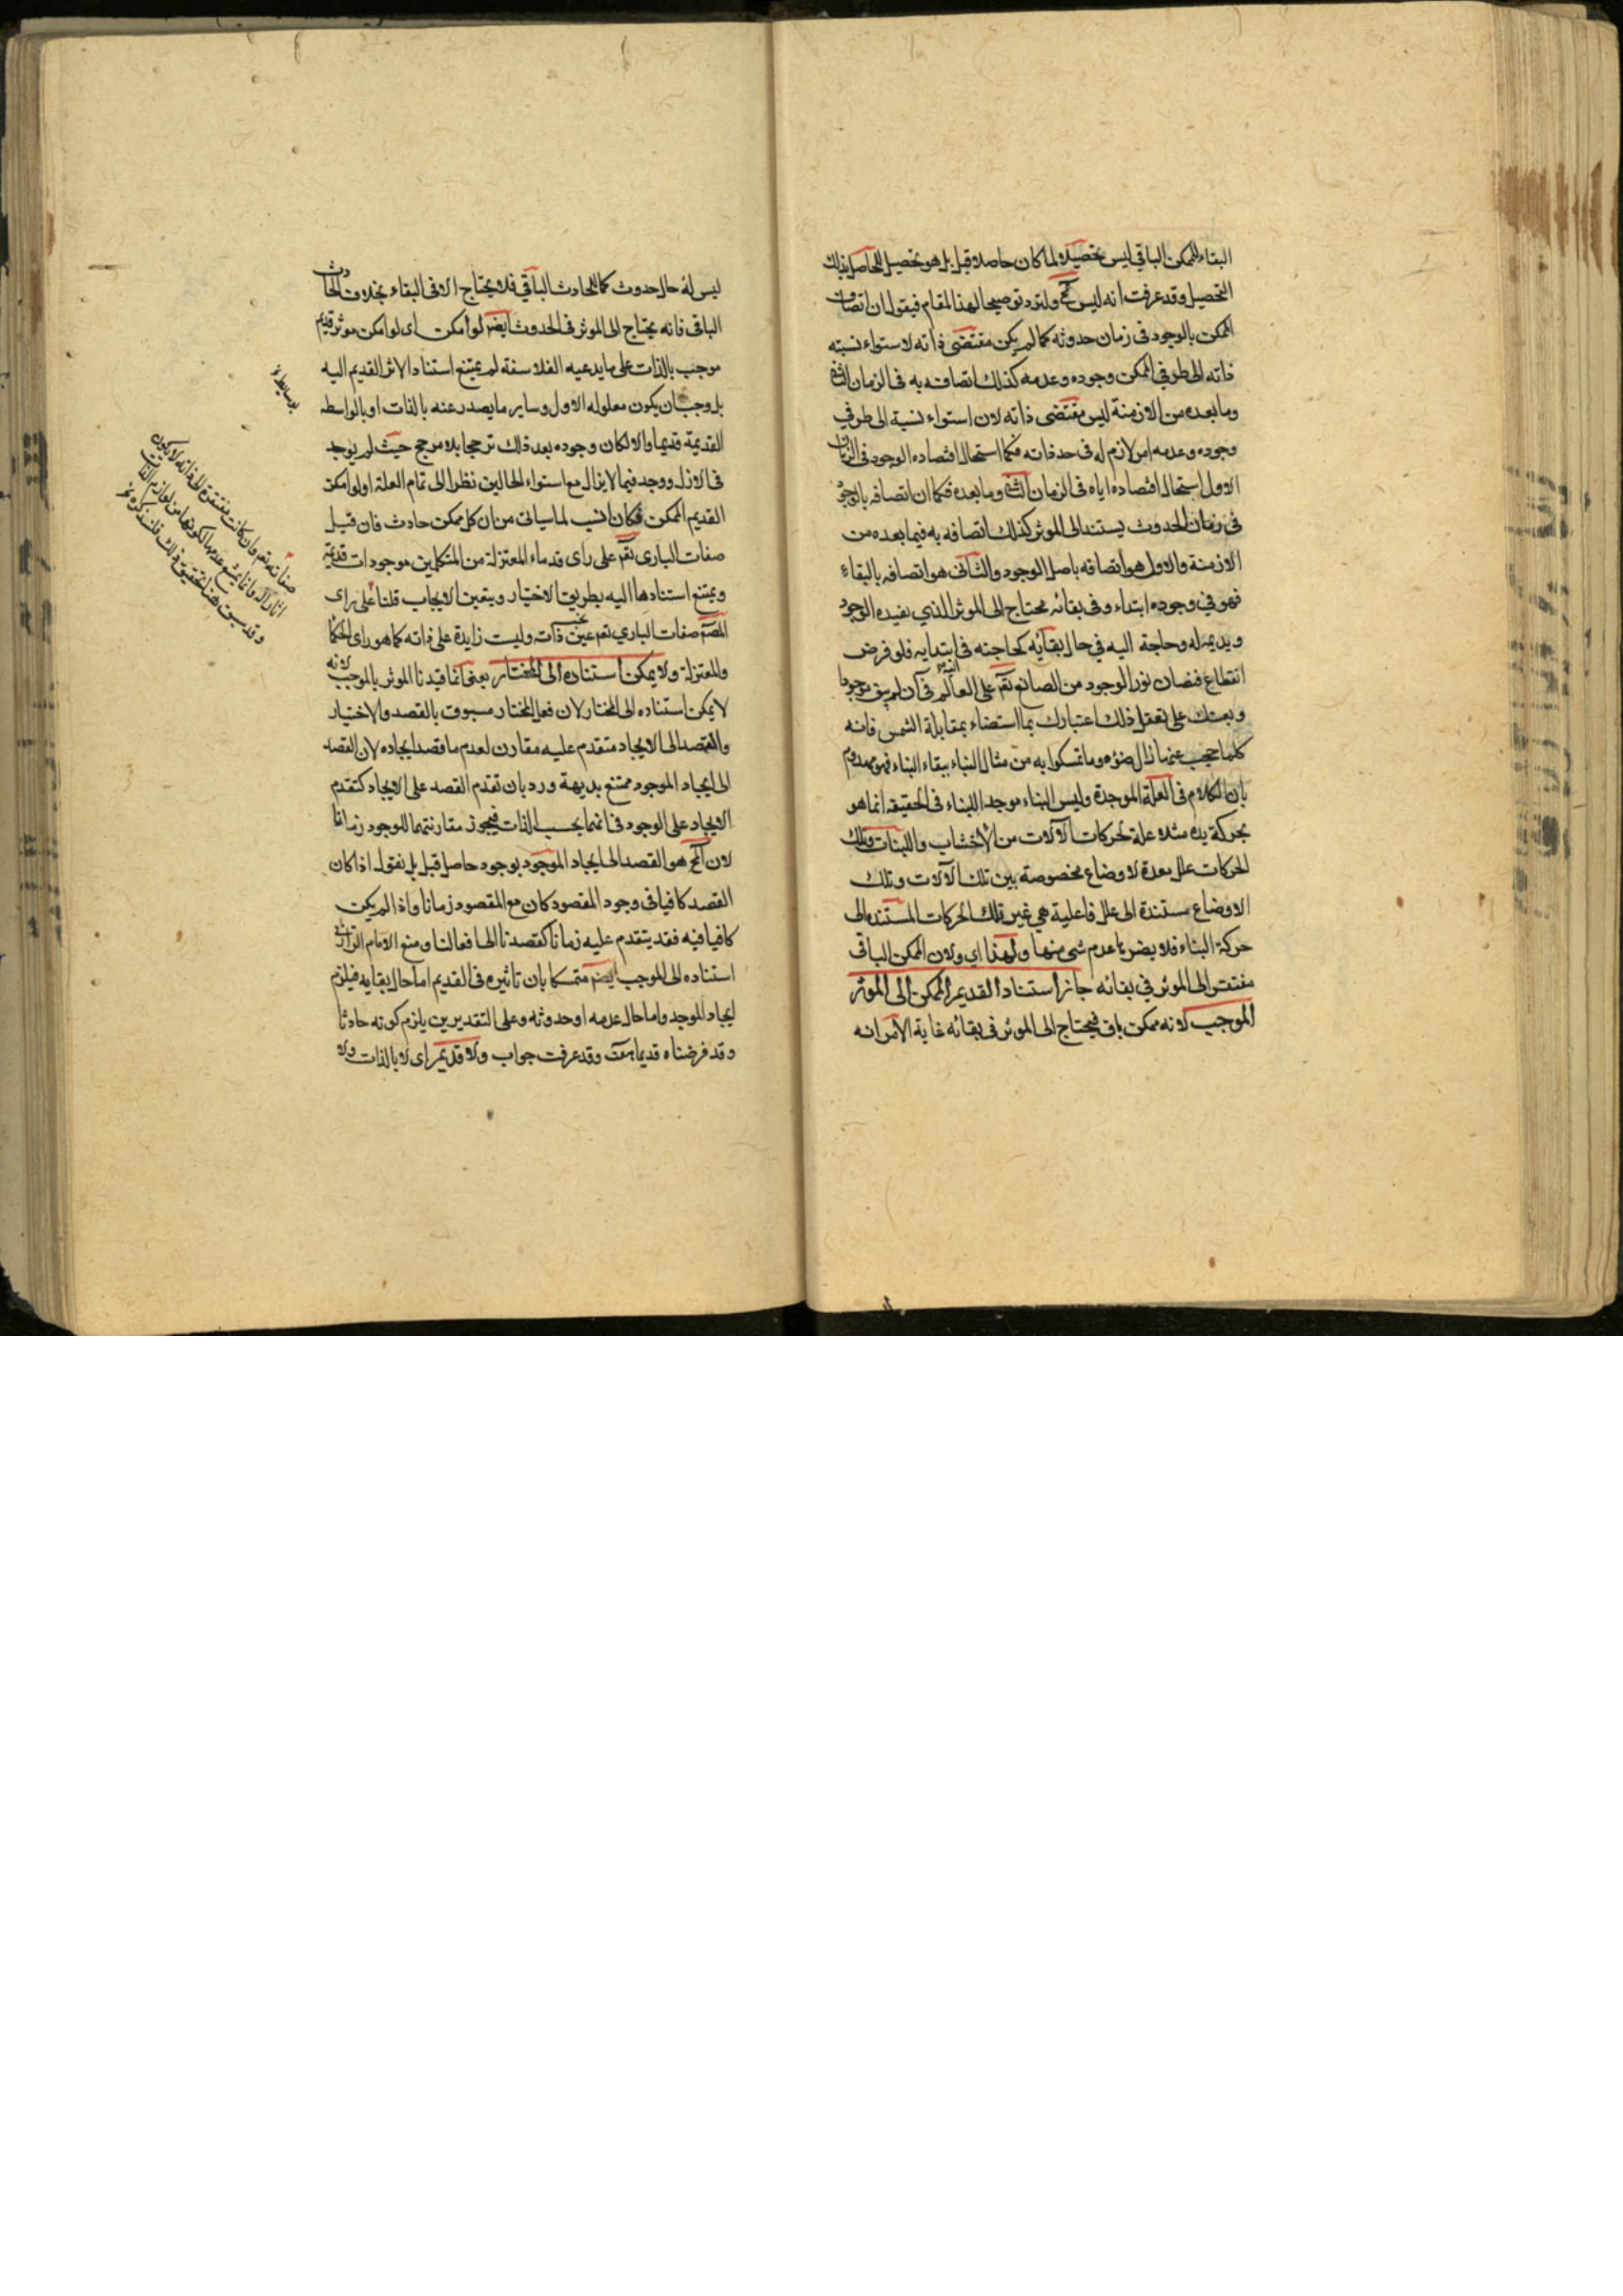 البقاء للممكن الباقي ليس تحصيلا لما كان حاصلا قبل بل هو تحصيل للحاصل بذلك
التحصيل وقد عرفت انه ليس بمح ولنزد توضيحا لهذا المقام فيقول ان اتصاف
الممكن بالوجود في زمان حدوثه كما لم يكن مقتضى ذاته لاستواء نسبته
ذاته الى طرفي الممكن وجوده وعدمه كذلك اتصافه به في الزمان الثاني
وما بعده من الازمنة ليس مقتضى ذاته لان استواء نسبة الى طرفي
وجوده وعدمه امر لازم له في حد ذاته فكما استحال اقتضاده الوجود في الزمان
الاول استحال اقتضاده اياه في الزمان الثاني وما بعده فكما ان اتصافه بالوجود
في زمان الحدوث يستند الى الموثر كذلك اتصافه به فيما بعده من
الازمنة والاول هو اتصافه باصل الوجود والثاني هو اتصافه بالبقاء
فهو في وجوده ابتداء وفي بقائه محتاج الى الموثر الذي يفيده الوجود
ويديمه له وحاجة اليه في حال بقائه كحاجته في ابتدايه فلو فرض
انقطاع فيضان نور الوجود من الصانع تعم على العالم في آن لم يبق موجودا
ويعينك على تعقل ذلك اعتبارك بما استضاء بمقابلة الشمس فانه
كلما حجب عنها زال ضوءه وما تمسكوا به من مثال البناء ببقاء البناء فهو مهدوم
بان الكلام في العلة الموجدة وليس البناء موجد اللبناء في الحقيقه انما هو
بحركة يده مثلا علة لحركات الآلات من الأخشاب واللبنات وتلك
الحركات علل معدة لاوضاع مخصوصة بين تلك الآلات وتلك
الاوضاع مستندة الى علل فاعلية هي غير تلك الحركات المستنده الى
حركة البناء فلا يضر بها عدم شى منها ولهذا اي ولان الممكن الباقي
مفتقر الى الموثر في بقائه جاز استناد القديم الممكن الى الموثر
الموجب لانه ممكن باق فيحتاج الى الموثر في بقائه غاية الأمر انه
ليس له حال حدوث كما للحادث الباقي فلا يحتاج الا في البقاء بخلاف الحادث
الباقي فانه يحتاج الى الموثر في الحدوث ايضم لو أمكن اى لو امكن موثر قديم
موجب بالذات على ما يدعيه الفلاسفة لم يمتنع استناد الاثر القديم اليه
بل وجب ان يكون معلوله الاول وساير ما يصدر عنه بالذات او بالواسطه
القديمة قديما والا لكان وجوده بعد ذلك ترجحا بلا مرجح حيث لم يوجد
في الازل ووجد فيما لا يزال مع استواء الحالين نظرا الى تمام العلة او لو امكن
القديم الممكن فكان انسب لما سياتى من ان كل ممكن حادث فان قيل
صفات البارى تعم على راى قدماء المعتزلة من المتكلمين موجودات قديمة
ويمتنع استنادها اليه بطريق الاختيار ويتعين الايجاب قلنا على راى
المصم صفات الباري تعم عين ذاته وليست زايدة على ذاته كما هو راى الحكما
والمعتزلة ولا يمكن استناده الى المختار يعنى انما قيدنا الموثر بالموجب لانه
لا يمكن استناده الى المختار لان فعل المختار مسبوق بالقصد والاختيار
والقصد الى الايجاد متقدم عليه مقارن لعدم ما قصد ايجاده لان القصد
الى ايجاد الموجود ممتنع بديهة ورد بان تقدم القصد على الايجاد كتقدم
الايجاد على الوجود في انهما بحسب الذات فيجوز مقارنتهما للوجود زمانا
لان المح هو القصد الى ايجاد الموجود بوجود حاصل قبل بل نقول اذا كان
القصد كافيا في وجود المقصود كان مع المقصود زمانا واذا لم يكن
كافيا فيه فقد يتقدم عليه زمانا كقصدنا الى افعالنا ومنع الامام الرازى
استناده الى الموجب ايضم متمسكا بان تاثيره في القديم اما حال بقايه فيلزم
ايجاد الموجد واما حال عدمه او حدوثه وعلى التقديرين يلزم كونه حادثا
وقد فرضناه قديما هف وقد عرفت جواب ولا قديم اى لا بالذات ولا
صفاته تعم وان كانت مفتقرة الى ذاته لا يكون
اثارا له وانما يمتنع عدمها لكونها من لوازم الذات
وقد سبق هذا تحقيق ذلك فلنذكره